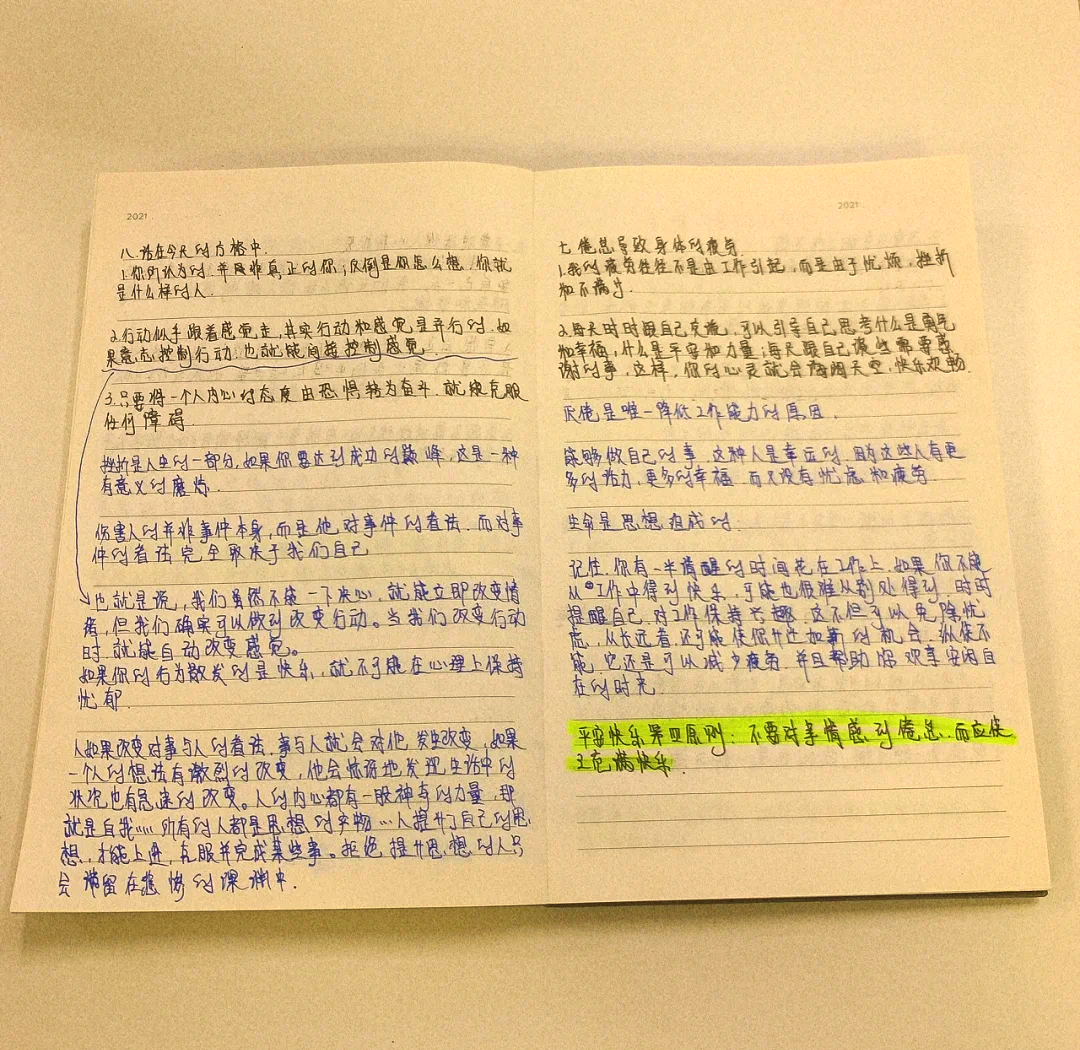 2021
八.活在今天的方格中.
1.你所认为的,并降非真正的你;反倒是你怎么想,你就
是什么样的人.
2.行动似乎跟着感觉走,其实行动和感觉是并行的.如
果意志控制行动.也就能间接控制感觉
3.只要将一个人内心的态度由恐惧转为奋斗.就能克服
任何障碍.
挫折是人生的一部分,如果你要达到成功的巅峰,这是一种
有意义的磨炼.
伤害人的并非事件本身,而是他对事件的看法.而对事
件的看法完全取决于我们自己
也就是说,我们虽然不能一下决心,就能立即改变情
绪,但我们确实可以做到改变行动。当我们改变行动
时,就能自动改变感觉。
如果你的行为散发的是快乐,就不可能在心理上保持
忧郁.
人如果改变对事与人的看法.事与人就会对他发生改变,如果
一个人的想法有激烈的改变,他会惊讶地发现生活中的
状况也有急速的改变。人的内心都有一股神奇的力量,那
就是自我……所有的人都是思想的产物…人提升了自己的思
想,才能上进,克服并完成某些事。拒绝提升思想的人只
会滞留在悲惨的深渊中.
2021
七.倦怠导致身体的疲劳
1.我的疲劳往往不是由工作引起,而是由于忧烦,挫折
和不满.
2.每天时时跟自己交流,可以引导自己思考什么是勇气
和幸福,什么是平安和力量;每天跟自己谈些需要感
谢的事,这样,你的心灵就会海阔天空,快乐欢畅.
厌倦是唯一降低工作能力的原因.
能够做自己的事,这种人是幸运的.因为这些人有更
多的活力,更多的幸福.而又没有忧虑和疲劳.
生命是思想组成的.
记住,你有一半清醒的时间花在工作上.如果你不能
从工作中得到快乐,可能也很难从别处得到.时时
提醒自己.对工作保持兴趣.这不但可以免除忧
虑,从长远看,还可能使你升迁加薪的机会.纵使不
能,它还是可以减少疲劳,并且帮助你欢享安闲自
在的时光
平安快乐第四原则:不要对事情感到倦怠.而应使
之充满快乐.